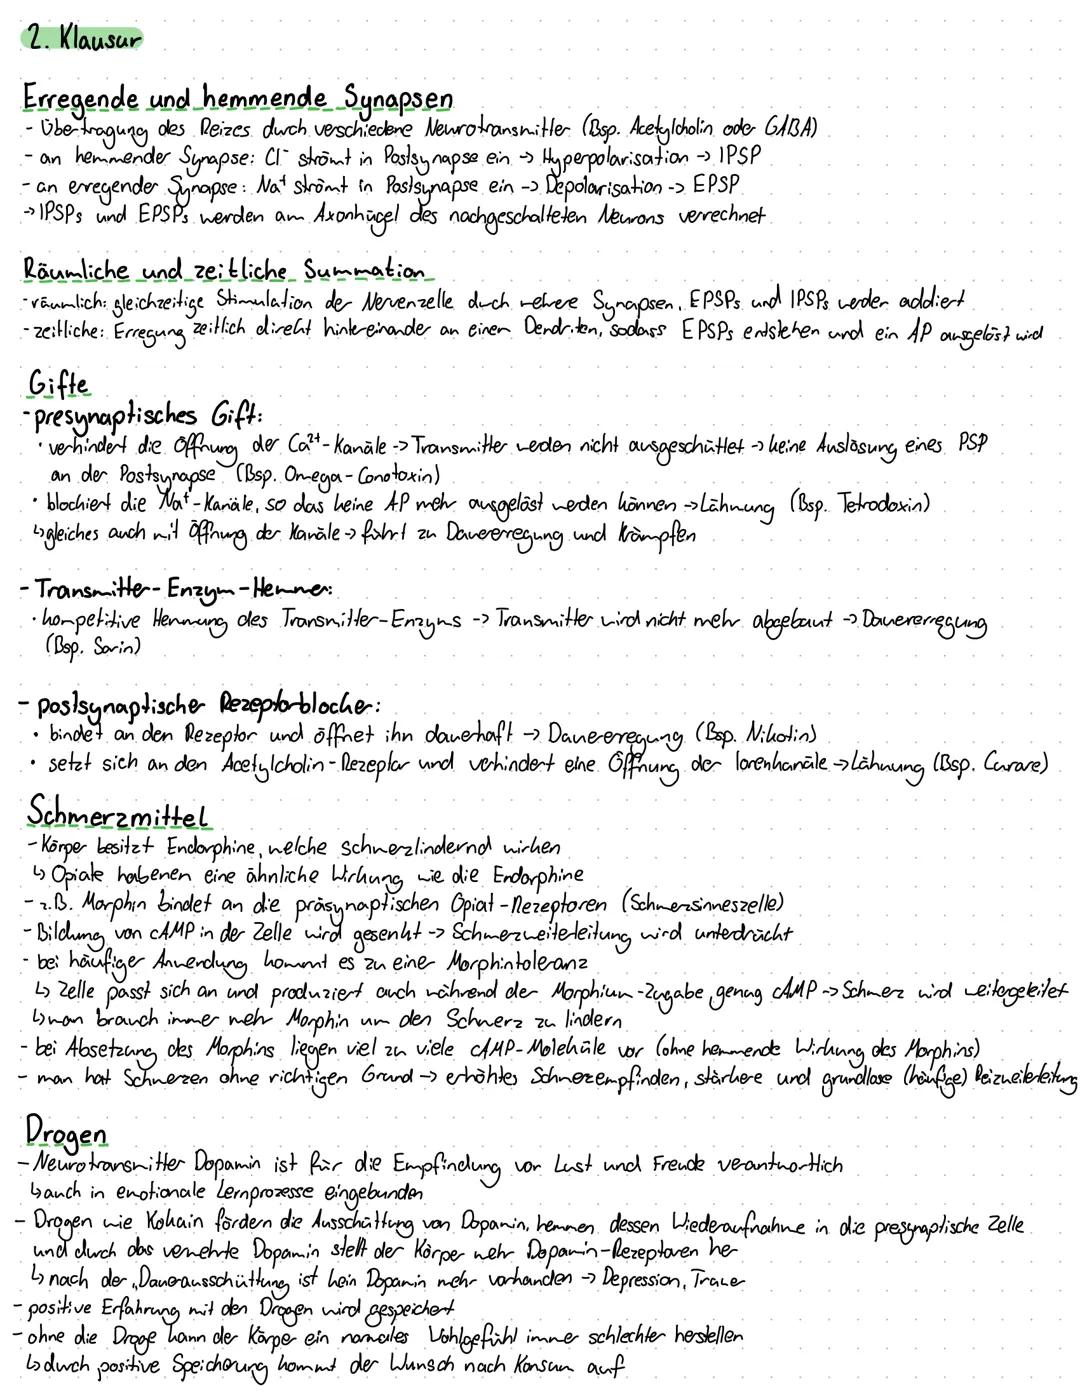 2. Klausur
Erregende und hemmende Synapsen
- Übertragung des Reizes durch verschiedene Neurotransmitter (Bsp. Acetylcholin oder GABA)
- an hemmender Synapse: Cl⁻ strömt in Postsynapse ein -> Hyperpolarisation -> IPSP
- an erregender Synapse: Na⁺ strömt in Postsynapse ein -> Depolarisation -> EPSP
-> IPSPs und EPSPs werden am Axonhügel des nachgeschalteten Neurons verrechnet
Räumliche und zeitliche Summation
- räumlich: gleichzeitige Stimulation der Nervenzelle duch mehere Synapsen, EPSPs und IPSPs werden addiert
- zeitliche: Erregung zeitlich direkt hintereinander an einem Dendriten, sodass EPSPs entstehen und ein AP ausgelöst wird
Gifte
- presynaptisches Gift:
• verhindert die Öffnung der Ca²⁺-Kanäle -> Transmitter werden nicht ausgeschüttet -> keine Auslösung eines PSP
an der Postsynapse (Bsp. Omega-Conotoxin)
• blochiert die Na⁺-Kanäle, so das keine AP mehr ausgelöst werden können -> Lähmung (Bsp. Tetrodoxin)
↳ gleiches auch mit Öffnung der Kanäle -> führt zu Dauererregung und Krämpfen
- Transmitter-Enzym-Hemmer:
• kompetitive Hemmung des Transmitter-Enzyms -> Transmitter wird nicht mehr abgebaut -> Dauererregung
(Bsp. Sarin)
- postsynaptischer Rezeptorblocker:
• bindet an den Rezeptor und öffnet ihn dauerhaft -> Dauererregung (Bsp. Nikotin)
• setzt sich an den Acetylcholin-Rezeptor und verhindert eine Öffnung der Ionenkanäle -> Lähmung (Bsp. Curare)
Schmerzmittel
- Körper besitzt Endorphine, welche schmerzlindernd wirken
↳ Opiate habenen eine ähnliche Wirkung wie die Endorphine
- z.B. Morphin bindet an die präsynaptischen Opiat-Rezeptoren (Schmerzsinneszelle)
- Bildung von cAMP in der Zelle wird gesenkt -> Schmerzweiterleitung wird unterdrückt
- bei häufiger Anwendung kommt es zu einer Morphintoleranz
↳ Zelle passt sich an und produziert auch während der Morphium-Zugabe genug cAMP -> Schmerz wird weitergeleitet
↳ man brauch immer mehr Morphin um den Schmerz zu lindern
- bei Absetzung des Morphins liegen viel zu viele cAMP-Moleküle vor (ohne hemmende Wirkung des Morphins)
- man hat Schmerzen ohne richtigen Grund -> erhöhtes Schmerzempfinden, stärkere und grundlose (häufige) Reizweiterleitung
Drogen
- Neurotransmitter Dopamin ist für die Empfindung von Lust und Freude verantwortlich
↳ auch in emotionale Lernprozesse eingebunden
- Drogen wie Kokain fördern die Ausschüttung von Dopamin, hemmen dessen Wiederaufnahme in die presynaptische Zelle
und durch das vermehrte Dopamin stellt der Körper mehr Dopamin-Rezeptoren her
↳ nach der „Dauerausschüttung ist kein Dopamin mehr vorhanden -> Depression, Trauer
- positive Erfahrung mit den Drogen wird gespeichert
- ohne die Droge kann der Körper ein normales Wohlgefühl immer schlechter herstellen
↳ durch positive Speicherung kommt der Wunsch nach Konsum auf